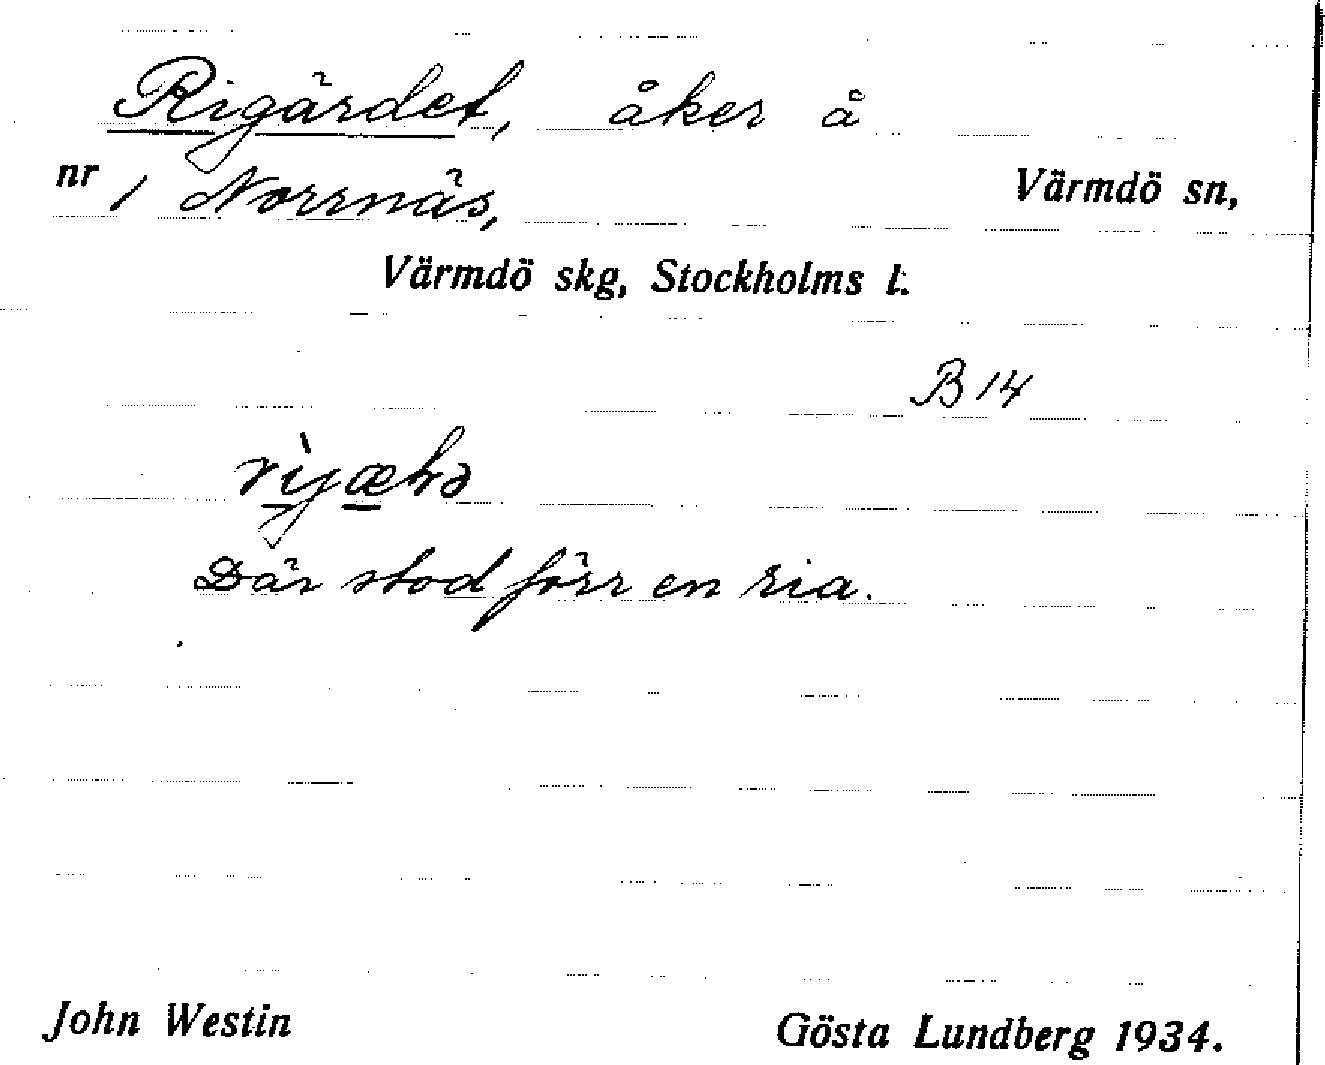 Rigärdet, åker å
nr 1 Norrnäs, Värmdö sn,
Värmdö skg, Stockholms l.
B 14
Där stod förr en ria.
John Westin Gösta Lundberg 1934.